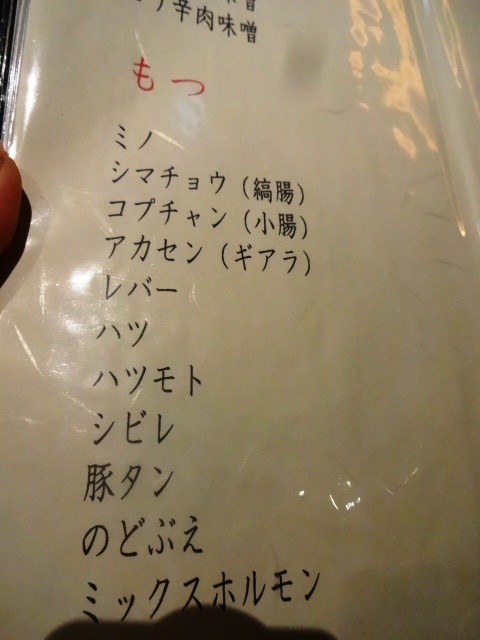 辛肉味噌
もつ
ミノ
シマチョウ (縞腸)
コプチャン (小腸)
アカセン (ギアラ)
レバー
ハツ
ハツモト
シビレ
豚タン
のどぶえ
ミックスホルモン